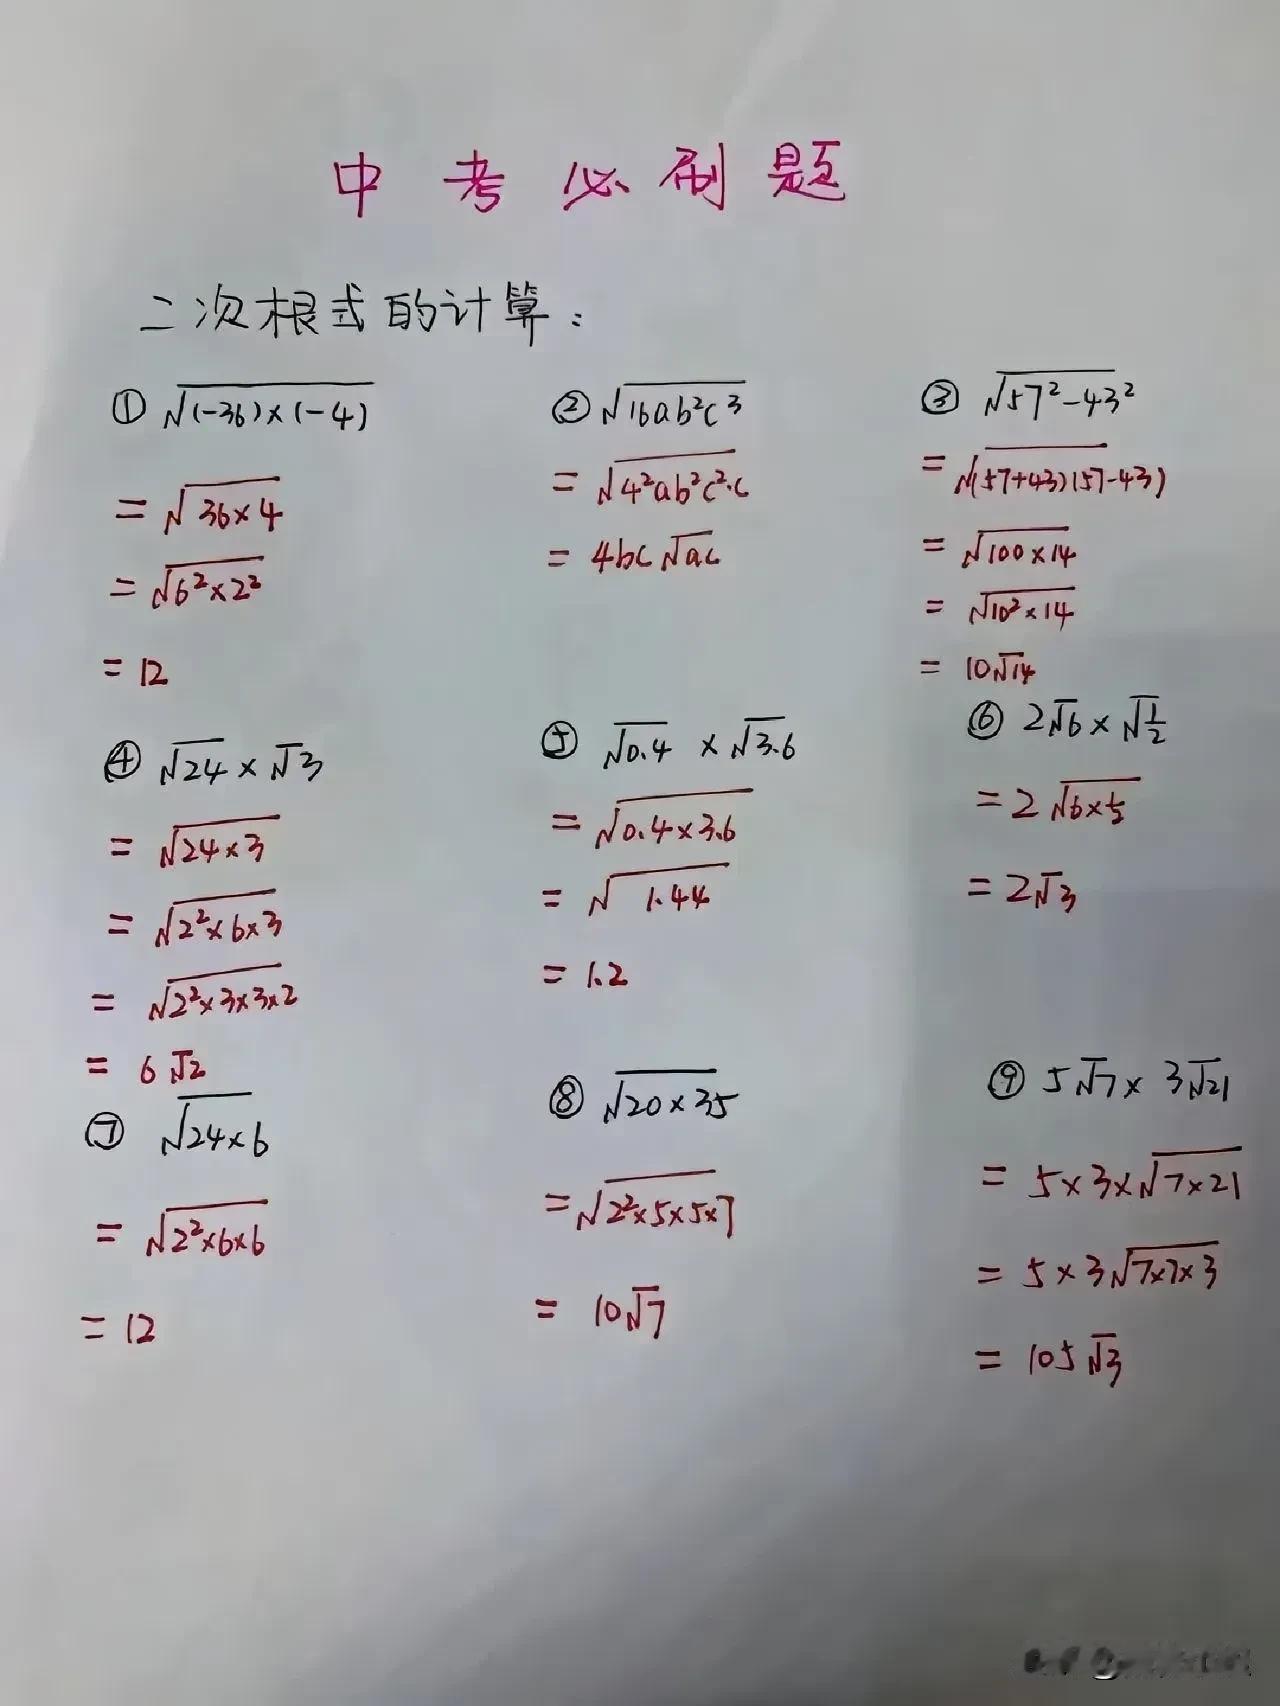 中考必刷题
二次根式的计算：
① √(-36)×(-4)
= √36×4
= √6²×2²
= 12
② √16ab²c³
= √4²ab²c²·c
= 4bc√ac
③ √57²-43²
= √(57+43)(57-43)
= √100×14
= √10²×14
= 10√14
④ √24×√3
= √24×3
= √2²×6×3
= √2²×3×3×2
= 6√2
⑤ √0.4×√3.6
= √0.4×3.6
= √1.44
= 1.2
⑥ 2√6×√1/2
= 2√6×1/2
= 2√3
⑦ √24×6
= √2²×6×6
= 12
⑧ √20×35
= √2²×5×5×7
= 10√7
⑨ 5√7×3√21
= 5×3×√7×21
= 5×3√7×7×3
= 105√3